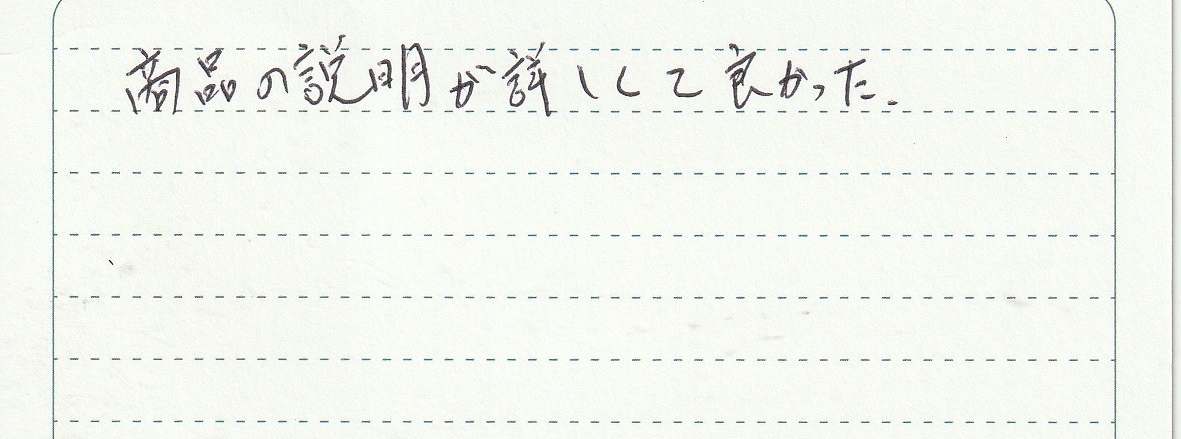 商品の説明が詳しくて良かった.